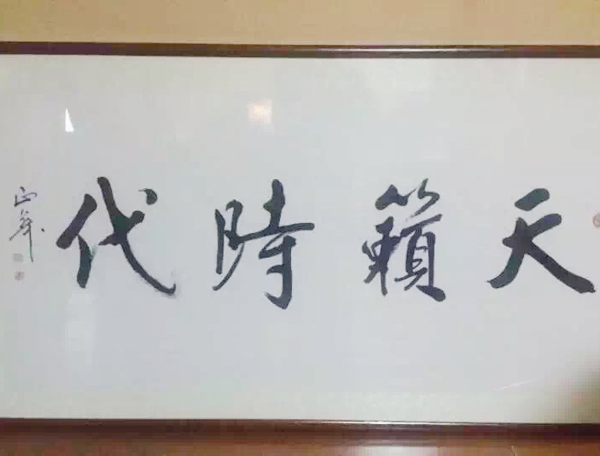 天籟時代